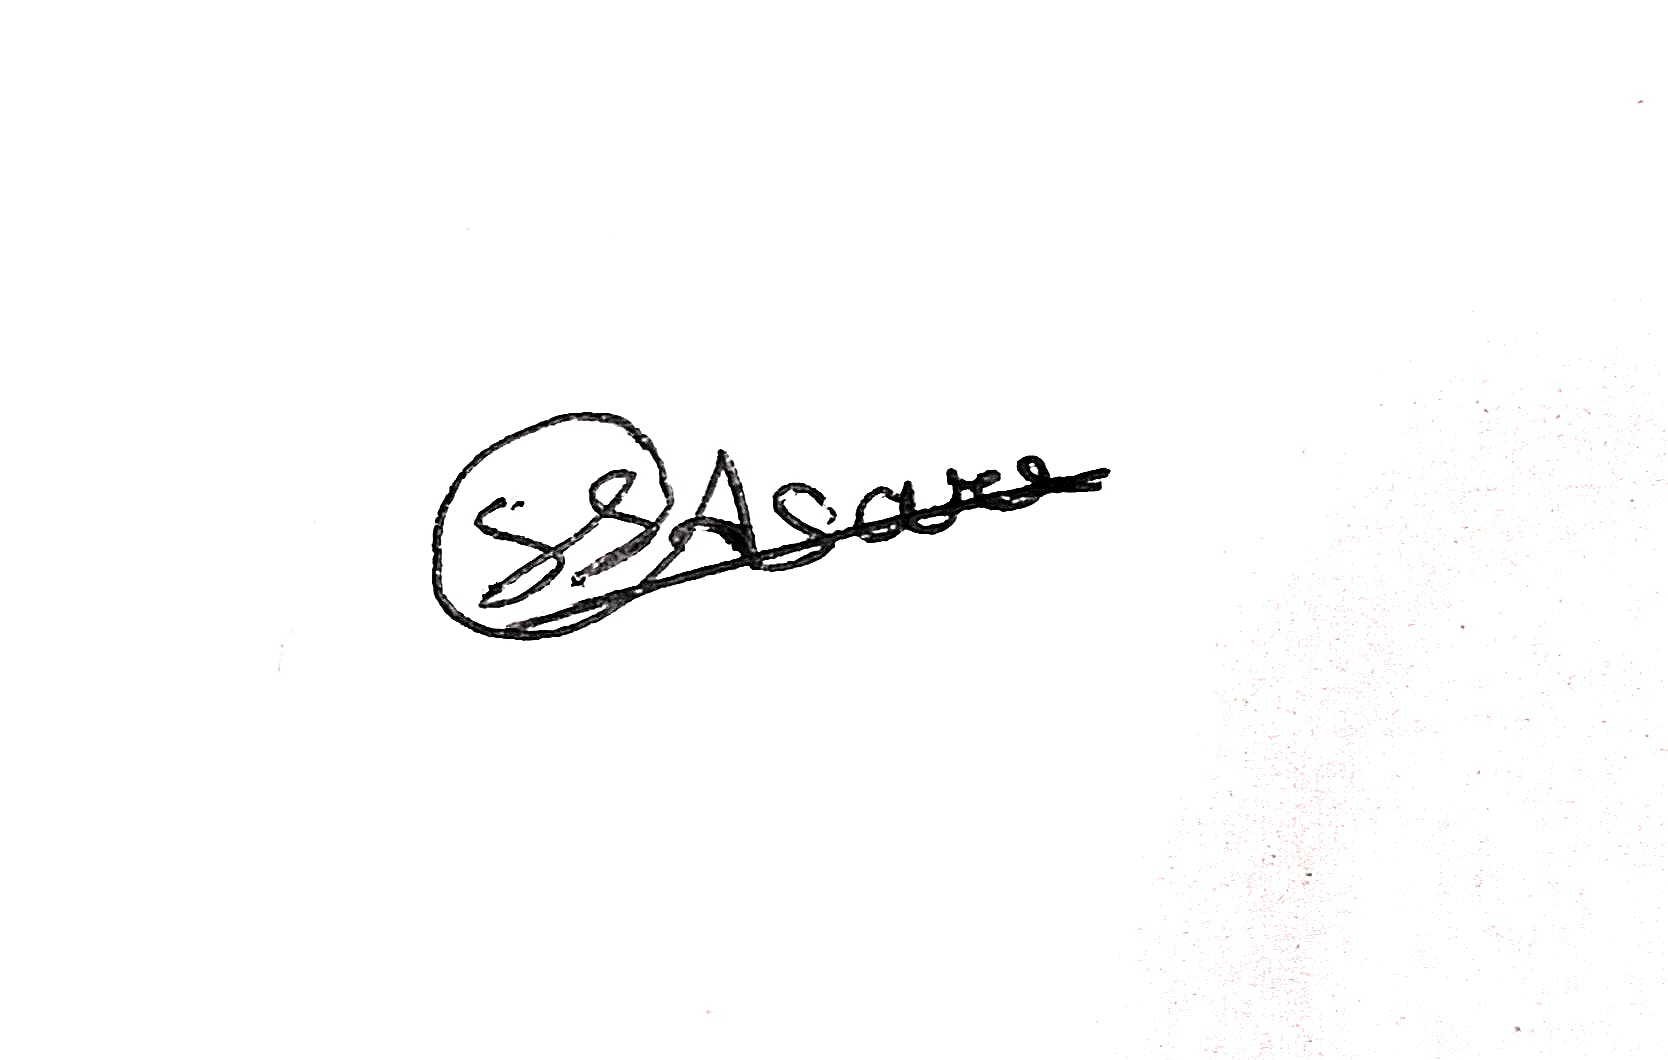 SS Asare